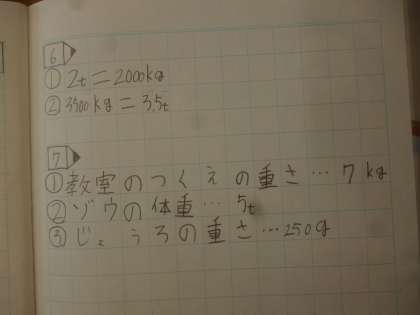 6
① 2t=2000kg
② 3500kg=3.5t
7
① 教室のつくえの重さ…7kg
② ゾウの体重…5t
③ じょうろの重さ…250g